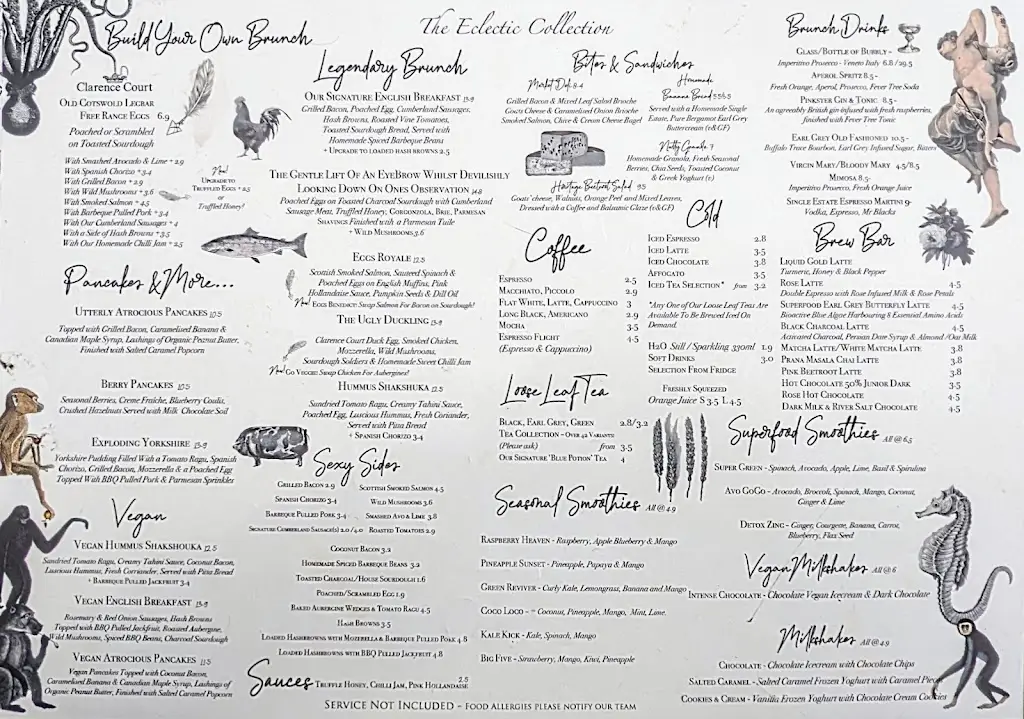 The Eclectic Collection
Build Your Own Brunch
Clarence Court
Old Cotswold Legbar
Free Range Eggs 6.9
Poached or Scrambled
on Toasted Sourdough
With Smashed Avocado & Lime + 2.9
With Spanish Chorizo + 3.4
With Grilled Bacon + 2.9
With Wild Mushrooms + 3.6
With Smoked Salmon + 4.5
With Barbeque Pulled Pork + 3.4
With Our Cumberland Sausages + 4
With a Side of Hash Browns + 3.5
With Our Homemade Chilli Jam + 2.5
New!
Upgrade to
Truffled Eggs + 2.5
or
Truffled Honey?
Pancakes & More...
Utterly Atrocious Pancakes 10.5
Topped with Grilled Bacon, Caramelised Banana &
Canadian Maple Syrup, Lashings of Organic Peanut Butter,
Finished with Salted Caramel Popcorn
Berry Pancakes 10.5
Seasonal Berries, Creme Fraiche, Blueberry Coulis,
Crushed Hazelnuts Served with Milk Chocolate Soil
Exploding Yorkshire 13.9
Yorkshire Pudding Filled With a Tomato Ragu, Spanish
Chorizo, Grilled Bacon, Mozzerella & a Poached Egg
Topped With BBQ Pulled Pork & Parmesan Sprinkles
Vegan
Vegan Hummus Shakshouka 12.5
Sundried Tomato Ragu, Creamy Tahini Sauce, Coconut Bacon,
Luscious Hummus, Fresh Corriander, Served with Pitta Bread
+ Barbeque Pulled Jackfruit 3.4
Vegan English Breakfast 13.9
Rosemary & Red Onion Sausages, Hash Browns
Topped with BBQ Pulled Jackfruit, Roasted Aubergine,
Wild Mushrooms, Spiced BBQ Beans, Charcoal Sourdough
Vegan Atrocious Pancakes 11.5
Vegan Pancakes Topped with Coconut Bacon,
Caramelised Banana & Canadian Maple Syrup, Lashings of
Organic Peanut Butter, Finished with Salted Caramel Popcorn
Legendary Brunch
Our Signature English Breakfast 13.9
Grilled Bacon, Poached Egg, Cumberland Sausages,
Hash Browns, Roasted Vine Tomatoes,
Toasted Sourdough Bread, Served with
Homemade Spiced Barbeque Beans
+ Upgrade to loaded hash browns 2.5
The Gentle Lift Of An EyeBrow Whilst Devilishly
Looking Down On Ones Observation 14.8
Poached Eggs on Toasted Charcoal Sourdough with Cumberland
Sausage Meat, Truffled Honey, Gorgonzola, Brie, Parmesan
Shavings Finished with a Parmesan Tuile
+ Wild Mushrooms 3.6
Eggs Royale 12.5
Scottish Smoked Salmon, Sauteed Spinach &
Poached Eggs on English Muffins, Pink
Hollandaise Sauce, Pumpkin Seeds & Dill Oil
New! Eggs Benedict? Swap Salmon For Bacon on Sourdough!
The Ugly Duckling 13.9
Clarence Court Duck Egg, Smoked Chicken,
Mozzerella, Wild Mushrooms,
Sourdough Soldiers & Homemade Sweet Chilli Jam
New! Go Vegged? Swap Chicken For Aubergines?
Hummus Shakshuka 12.5
Sundried Tomato Ragu, Creamy Tahini Sauce,
Poached Egg, Luscious Hummus, Fresh Coriander,
Served with Pitta Bread
+ Spanish Chorizo 3.4
Sexy Sides
Grilled Bacon 2.9 Scottish Smoked Salmon 4.5
Spanish Chorizo 3.4 Wild Mushrooms 3.6
Barbeque Pulled Pork 3.4 Smashed Avo & Lime 3.8
Signature Cumberland Sausage(s) 2.0/4.0 Roasted Tomatoes 2.9
Coconut Bacon 3.2
Homemade Spiced Barbeque Beans 3.2
Toasted Charcoal/House Sourdough 1.6
Poached/Scrambled Egg 1.9
Baked Aubergine Wedges & Tomato Ragu 4.5
Hash Browns 3.5
Loaded Hashbrowns with Mozerella & Barbeque Pulled Pork 4.8
Loaded Hashbrowns with BBQ Pulled Jackfruit 4.8
Sauces Truffle Honey, Chilli Jam, Pink Hollandaise 2.5
Bites & Sandwiches
Market Deli 8.4
Grilled Bacon & Mixed Leaf Salad Brioche
Goats Cheese & Caramelised Onion Brioche
Smoked Salmon, Chive & Cream Cheese Bagel
Homemade
Banana Bread 5.5/6.5
Served with a Homemade Single
Estate, Pure Bergamot Earl Grey
Buttercream (v&GF)
Nutty Granola 7
Homemade Granola, Fresh Seasonal
Berries, Chia Seeds, Toasted Coconut
& Greek Yoghurt (v)
Heritage Beetroot Salad 9.5
Goats' cheese, Walnuts, Orange Peel and Mixed Leaves,
Dressed with a Coffee and Balsamic Glaze (v&GF)
Coffee
Espresso 2.5
Macchiato, Piccolo 2.9
Flat White, Latte, Cappuccino 3
Long Black, Americano 2.9
Mocha 3.5
Espresso Flight 4.5
(Espresso & Cappuccino)
Cold
Iced Espresso 2.8
Iced Latte 3.5
Iced Chocolate 3.8
Affogato 3.5
Iced Tea Selection* from 3.2
*Any One of Our Loose Leaf Teas Are
Available To Be Brewed Iced On
Demand.
H2O Still / Sparkling 330ml 1.9
Soft Drinks 3.0
Selection From Fridge
Freshly Squeezed
Orange Juice S 3.5 L 4.5
Loose Leaf Tea
Black, Earl Grey, Green 2.8/3.2
Tea Collection - Over 42 Variants
(Please ask) from 3.5
Our Signature 'Blue Potion' Tea 4
Seasonal Smoothies All @ 4.9
Raspberry Heaven - Raspberry, Apple Blueberry & Mango
Pineapple Sunset - Pineapple, Papaya & Mango
Green Reviver - Curly Kale, Lemongrass, Banana and Mango
Coco Loco - Coconut, Pineapple, Mango, Mint, Lime.
Kale Kick - Kale, Spinach, Mango
Big Five - Strawberry, Mango, Kiwi, Pineapple
Brunch Drinks
Glass/Bottle of Bubbly -
Imperitivo Prosecco - Veneto Italy 6.8 / 29.5
Aperol Spritz 8.5 -
Fresh Orange, Aperol, Prosecco, Fever Tree Soda
Pinkster Gin & Tonic 8.5 -
An agreeably British gin infused with fresh raspberries,
finished with Fever Tree Tonic
Earl Grey Old Fashioned 10.5 -
Buffalo Trace Bourbon, Earl Grey Infused Sugar, Bitters
Virgin Mary/Bloody Mary 4.5/8.5
Mimosa 8.5-
Imperitivo Prosecco, Fresh Orange Juice
Single Estate Espresso Martini 9-
Vodka, Espresso, Mr Blacks
Brew Bar
Liquid Gold Latte
Turmeric, Honey & Black Pepper
Rose Latte 4.5
Double Espresso with Rose Infused Milk & Rose Petals
Superfood Earl Grey Butterfly Latte 4.5
Bioactive Blue Algae Harbouring 8 Essential Amino Acids
Black Charcoal Latte 4.5
Activated Charcoal, Persian Date Syrup & Almond/Oat Milk
Matcha Latte/White Matcha Latte 3.8
Prana Masala Chai Latte 3.8
Pink Beetroot Latte 3.8
Hot Chocolate 50% Junior Dark 3.5
Rose Hot Chocolate 4.5
Dark Milk & River Salt Chocolate 4.5
Superfood Smoothies All @ 6.5
Super Green - Spinach, Avocado, Apple, Lime, Basil & Spirulina
Avo GoGo - Avocado, Broccoli, Spinach, Mango, Coconut,
Ginger & Lime
Detox Zing - Ginger, Courgette, Banana, Carrot,
Blueberry, Flax Seed
Vegan Milkshakes All @ 6
Intense Chocolate - Chocolate Vegan Icecream & Dark Chocolate
Milkshakes All @ 4.9
Chocolate - Chocolate Icecream with Chocolate Chips
Salted Caramel - Salted Caramel Frozen Yoghurt with Caramel Pieces
Cookies & Cream - Vanilla Frozen Yoghurt with Chocolate Cream Cookies
Service Not Included - Food Allergies please notify our team